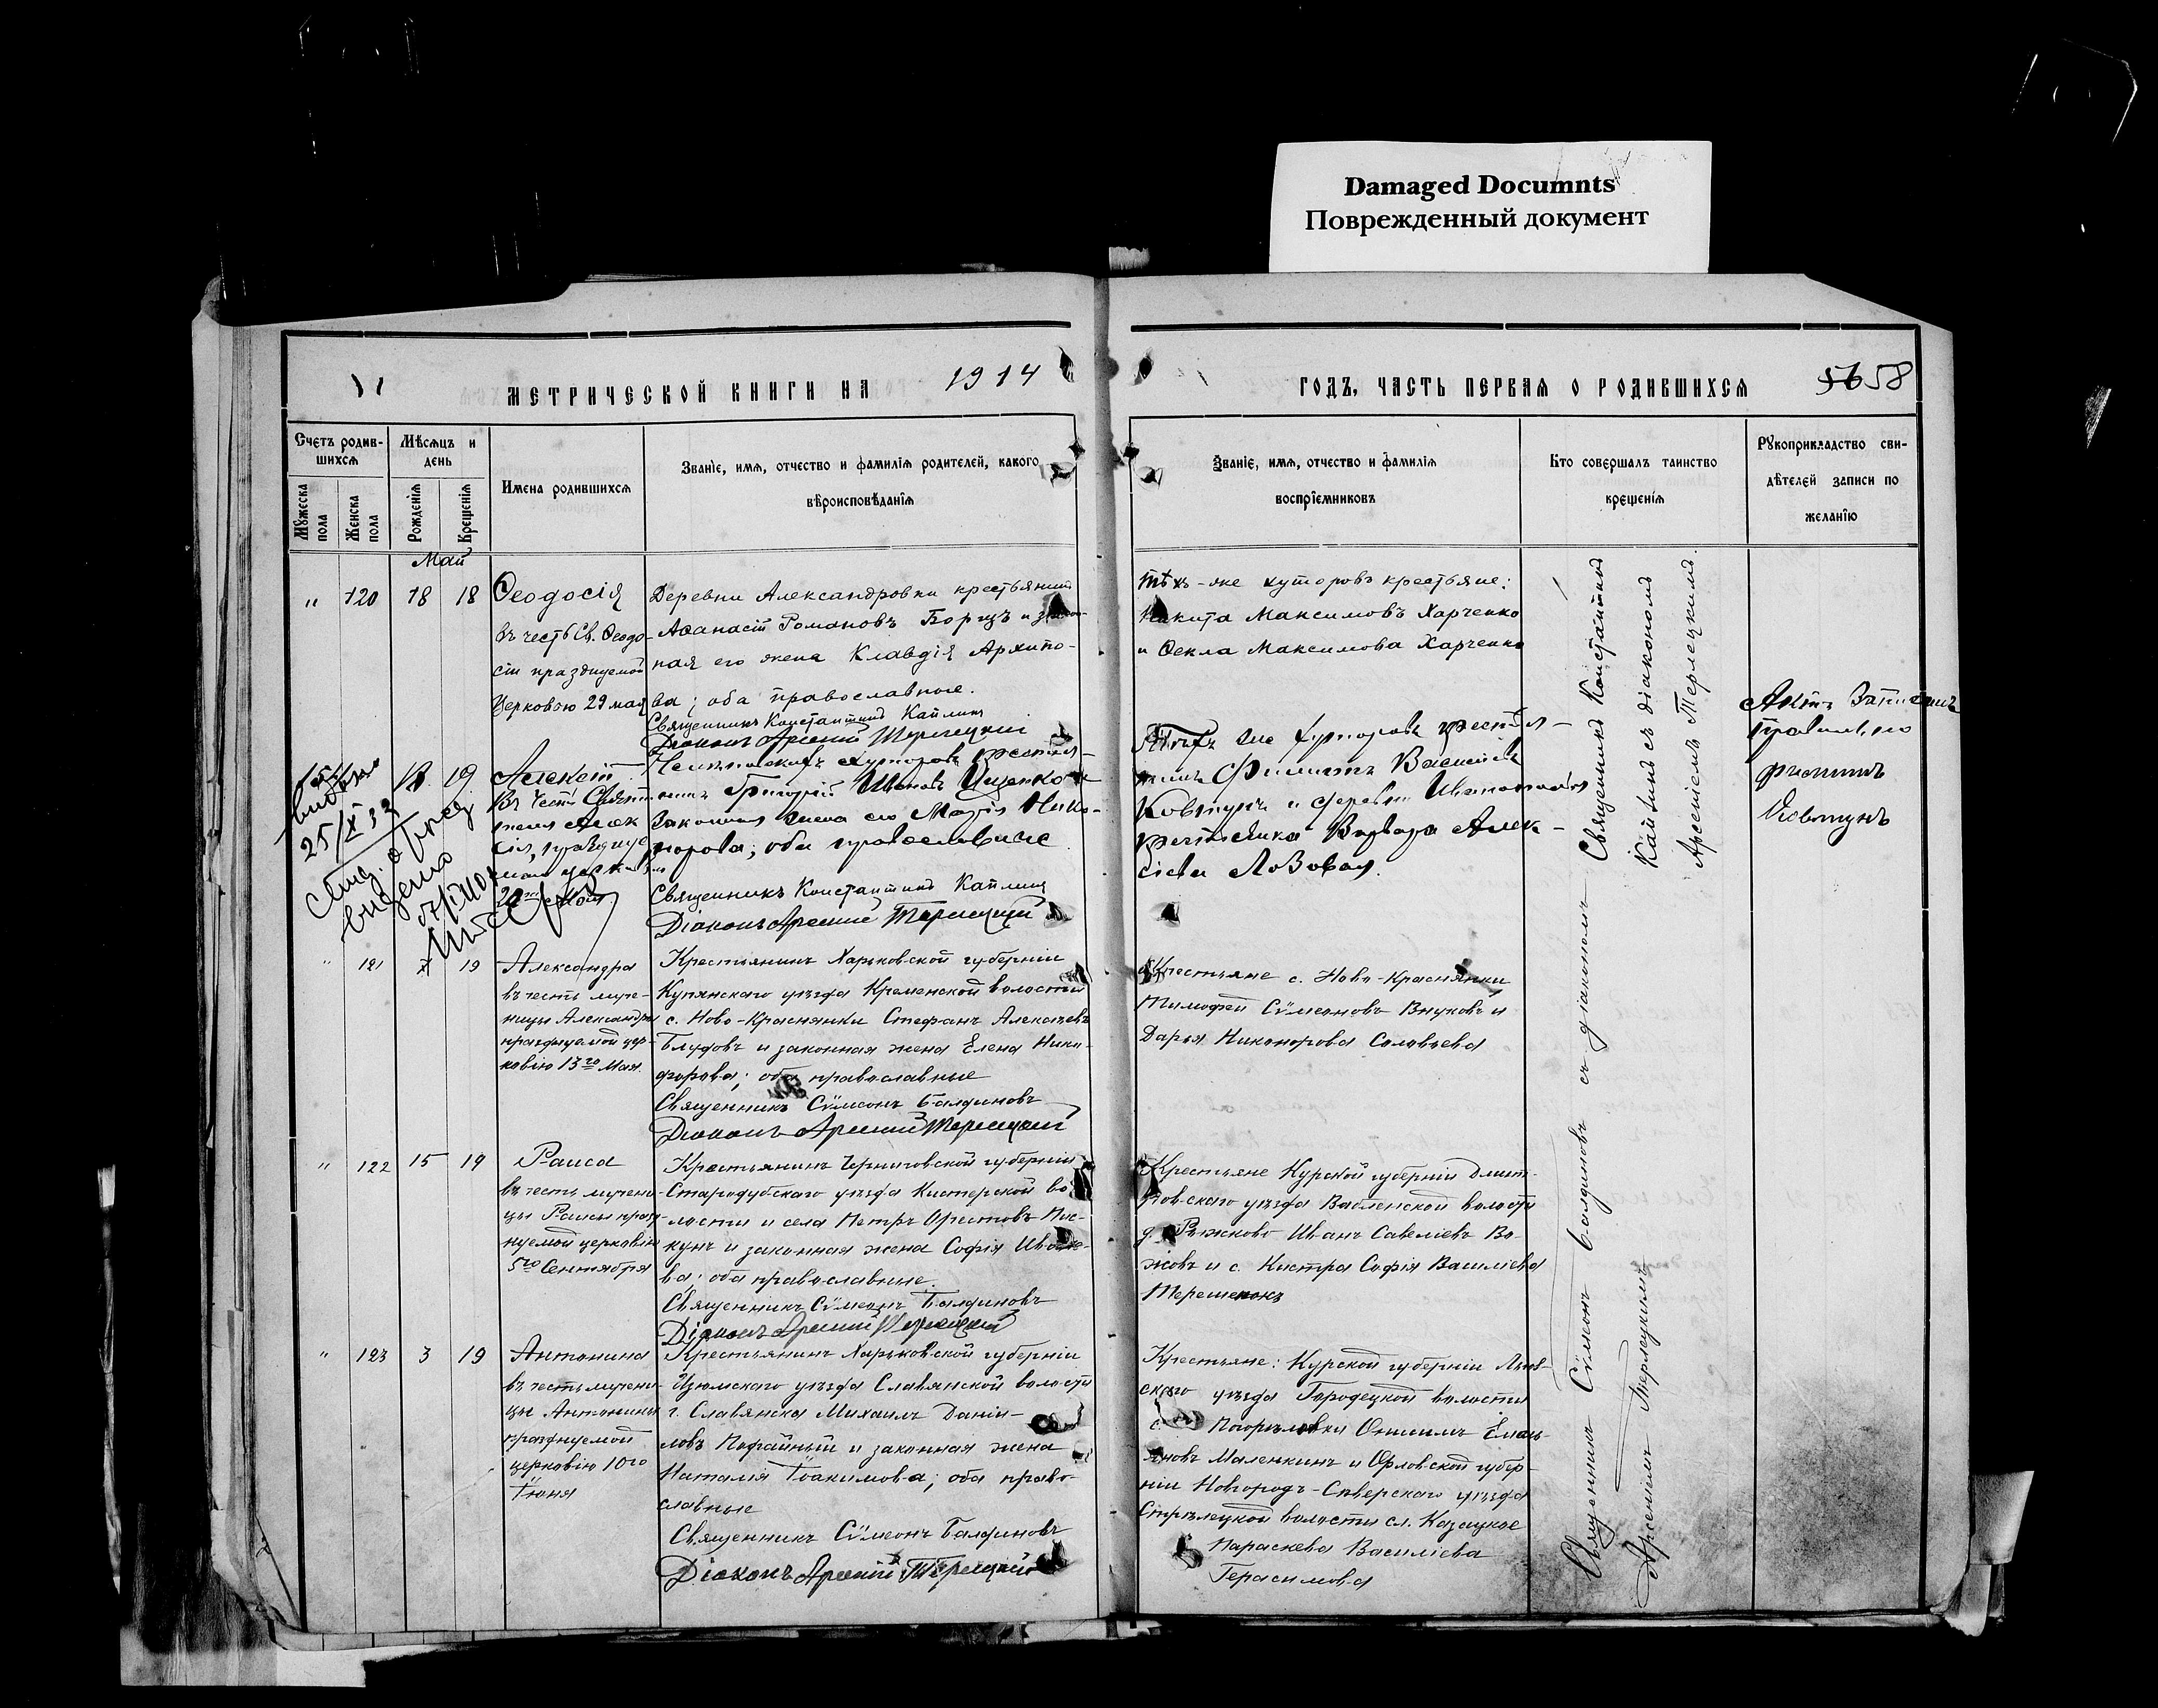 Damaged Documnts
Поврежденный документ
МЕТРИЧЕСКОЙ КНИГИ НА 1914
ГОДЪ, ЧАСТЬ ПЕРВАЯ О РОДИВШИХСЯ
58
Счетъ родив-
шихся
Мѣсяцъ и
день
Мужеска
пола
Женска
пола
Рожденія
Крещенія
Имена родившихся
Званіе, имя, отчество и фамилія родителей, какого
вѣроисповѣданія
Званіе, имя, отчество и фамилія
воспріемниковъ
Кто совершалъ таинство
крещенія
Рукоприкладство сви-
дѣтелей записи по
желанію
Май
" 120 18 18
Ѳеодосія
въ честь Св. Ѳеодо-
сіи празднуемой
Церковью 29 мая
Деревни Александровки крестьянинъ
Аѳанасій Романовъ Борщъ и закон-
ная его жена Клавдія Архипо-
ва; оба православные.
Священникъ Константинъ Каплинъ
Діаконъ Арсеній Терлецкій
тѣхъ-же хуторовъ крестьяне:
Никита Максимовъ Харченко
и Ѳекла Максимова Харченко
Священникъ Константинъ
Каплинъ съ діакономъ
Арсеніемъ Терлецкимъ.
25/X 33
19
Алексій
въ честь Святи-
теля Алек
сія, празднуе
20 Мая
хуторовъ крестья-
нинъ Григорій Ивановъ Ищенко и
законная жена его Марія Нико-
норова; оба православные
Священникъ Константинъ Каплинъ
Діаконъ Арсеній Терлецкій
Тѣхъ же хуторовъ крестья-
нинъ Филиппъ Васильевъ
Ковтунъ и деревни
крестьянка Варвара Алек-
сіева Лозовая.
Актъ записанъ
правильно
Филиппъ
Ковтунъ
" 121 7 19
Александра
въ честь муче-
ницы Александры
празднуемой цер-
ковію 13го Мая.
Крестьянинъ Харьковской губерніи
Купянскаго уѣзда Кременской волости
с. Ново-Краснянки Стефанъ Алексѣевъ
Блудовъ и законная жена Елена Ники-
форова; оба православные
Священникъ Сѵмеонъ Балдиновъ
Діаконъ Арсеній Терлецкій
Крестьяне с. Ново-Краснянки
Тимофей Сѵмеоновъ Внуковъ и
Дарья Никонорова Соловьева
" 122 15 19
Раиса
въ честь мучени-
цы Раисы празд-
нуемой церковію
5го Сентября
Крестьянинъ Черниговской губерніи
Стародубскаго уѣзда Кистерской во
лости и села Петръ Орестовъ Пис-
кунъ и законная жена Софія Ивано-
ва; оба православные.
Священникъ Сѵмеонъ Балдиновъ
Діаконъ Арсеній Терлецкій
Крестьяне Курской губерніи Дмит-
ровскаго уѣзда Вабленской волости
д. Рыжково Иванъ Савеліевъ Во-
жовъ и с. Кистра Софія Василіева
Терешенокъ
" 123 3 19
Антонина
въ честь мучени-
цы Антонины
празднуемой
церковію 10го
Іюня
Крестьянинъ Харьковской губерніи
Изюмскаго уѣзда Славянской волости
г. Славянска Михаилъ Даніи-
ловъ Пофайный и законная жена
Наталія Іоакимова; оба право-
славные
Священникъ Сѵмеонъ Балдиновъ
Діаконъ Арсеній Терлецкій
Крестьяне: Курской губерніи Льгов-
скаго уѣзда Городецкой волости
с. Погорѣловки Онисимъ Емель-
яновъ Маленкинъ и Орловской губер-
ніи Новгородъ-Сѣверскаго уѣзда
Стрѣлецкой волости сл. Казацкое
Параскева Василіева
Герасимова
Священникъ Сѵмеонъ Балдиновъ съ діакономъ
Арсеніемъ Терлецкимъ